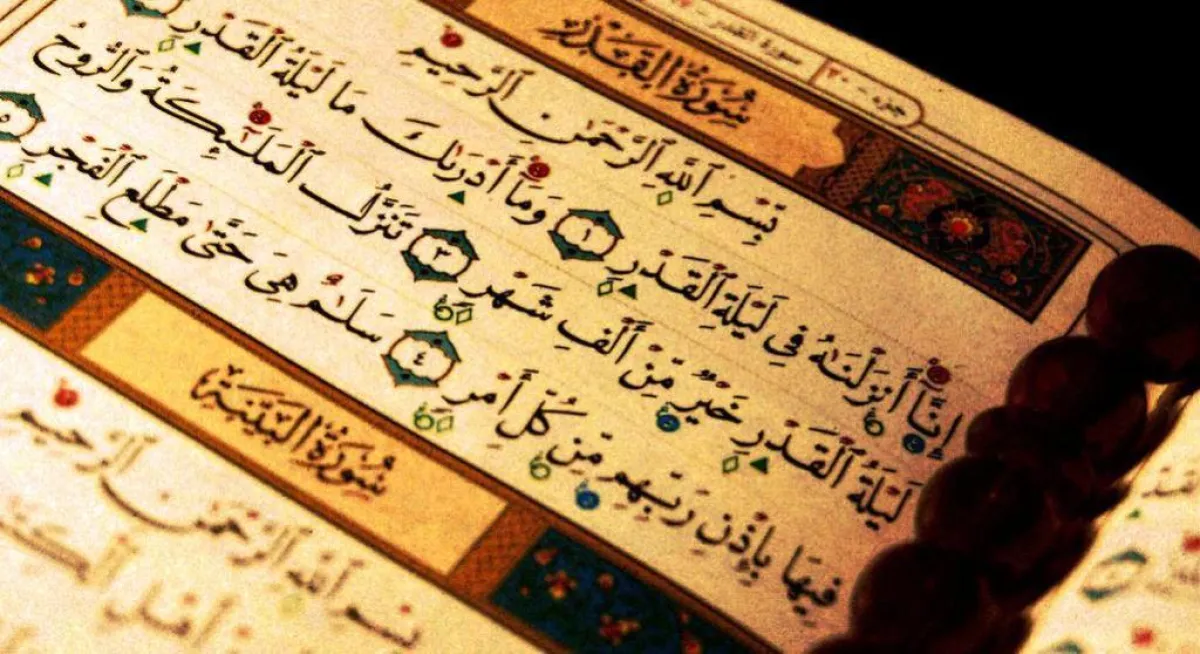 جزء - ٣٠
سورة القدر -
سُورَةُ القَدْرِ
بِسْمِ ٱللَّهِ ٱلرَّحْمَٰنِ ٱلرَّحِيمِ
إِنَّآ أَنزَلْنَٰهُ فِى لَيْلَةِ ٱلْقَدْرِ ١ وَمَآ أَدْرَىٰكَ مَا لَيْلَةُ ٱلْقَدْرِ
لَيْلَةُ ٱلْقَدْرِ خَيْرٌ مِّنْ أَلْفِ شَهْرٍ ٣ تَنَزَّلُ ٱلْمَلَٰٓئِكَةُ وَٱلرُّوحُ
فِيهَا بِإِذْنِ رَبِّهِم مِّن كُلِّ أَمْرٍ ٤ سَلَٰمٌ هِىَ حَتَّىٰ مَطْلَعِ ٱلْفَجْرِ ٥
سُورَةُ البَيِّنَةِ
بِسْمِ ٱللَّهِ ٱلرَّحْمَٰنِ ٱلرَّحِيمِ
أَهْلِ